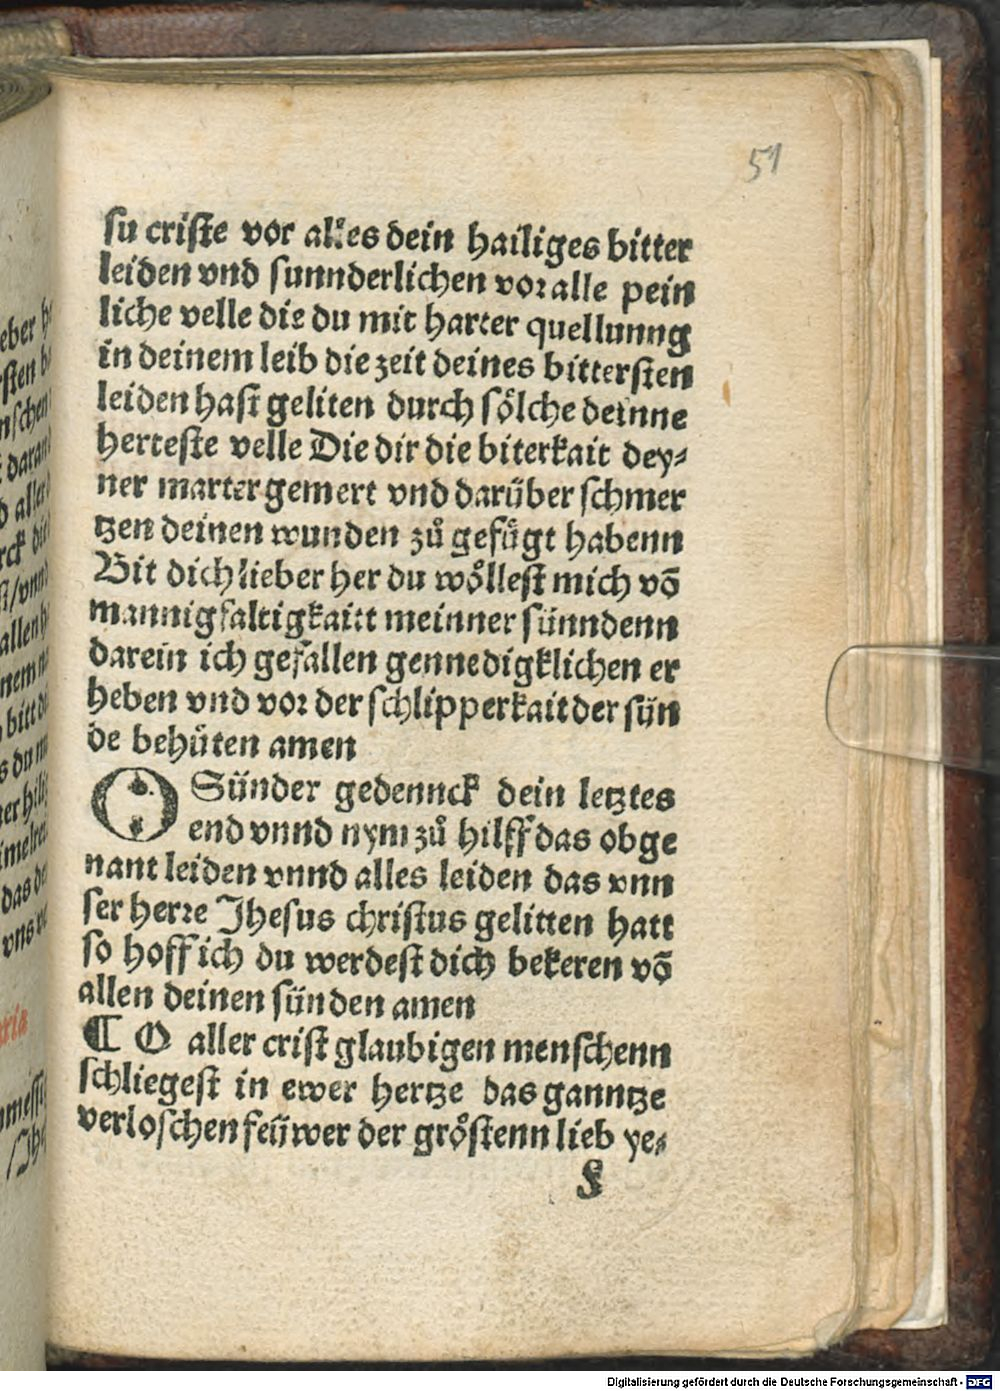 51
su criste vor alles dein hailiges bitter
leiden vnd sunnderlichen vor alle pein
liche velle die du mit harter quellunng
in deinem leib die zeit deines bittersten
leiden hast geliten durch soͤlche deinne
herteste velle Die dir die biterkait dey⸗
ner marter gemert vnd daruͤber schmer
tzen deinen wunden zuͦ gefuͤgt habenn
Bit dich lieber her du woͤllest mich võ
mannigfaltigkaitt meinner sünndenn
darein ich gefallen gennedigklichen er
heben vnd vor der schlipperkait der sün
de behuͤten amen
O Sünder gedennck dein letztes
end vnnd nym zuͦ hilff das obge
nant leiden vnnd alles leiden das vnn
ser herre Jhesus christus gelitten hatt
so hoff ich du werdest dich bekeren võ
allen deinen sünden amen
¶ O aller crist glaubigen menschenn
schliegest in ewer hertze das ganntze
verloschen feüwer der groͤstenn lieb ye⸗
Digitalisierung gefördert durch die Deutsche Forschungsgemeinschaft - DFG